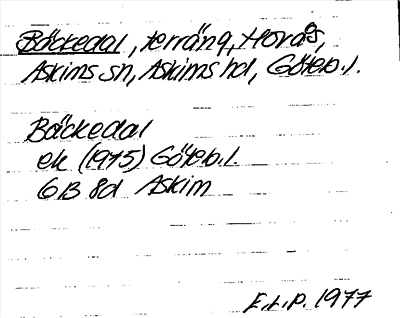 Bäckedal, terräng, Hovås,
Askims sn, Askims hd, Göteb.l.
Bäckedal
ek (1975) Göteb.l.
6B 8d Askim
E.L.P. 1977